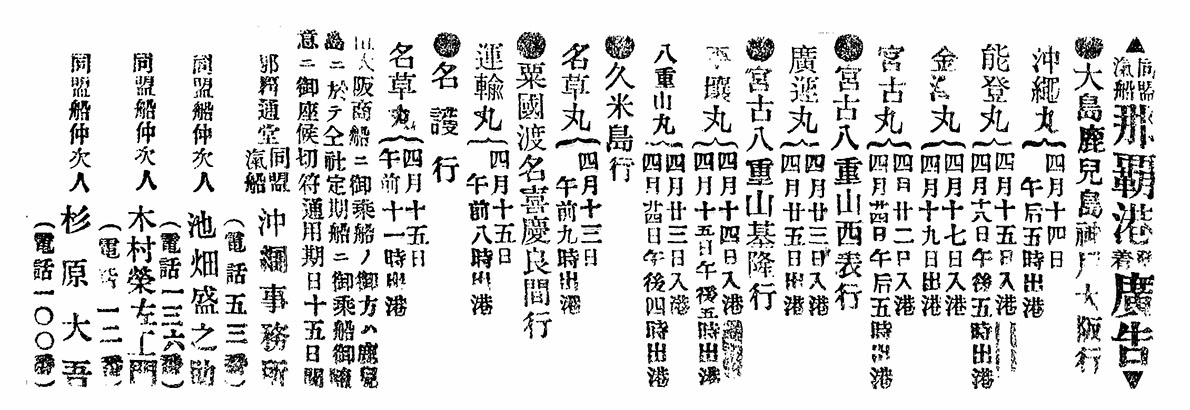 ▲同盟汽船那覇港發着廣告▼
●大島鹿兒島神戸大阪行
沖繩丸{四月十四日午后五時出港
能登丸{四月十五日入港
四月十六日午後五時出港
金 丸{四月十七日入港
四月十九日出港
宮古丸{四月廿二日入港
四月廿四日午后五時出港
●宮古八重山西表行
廣運丸{四月廿三日入港
四月廿五日出港
●宮古八重山基隆行
平壤丸{四月十四日入港
四月十五日午後五時出港
八重山丸{四月廿三日入港
四月廿四日午後四時出港
●久米島行
名草丸{四月十三日
午前九時出港
●粟國渡名喜慶良間行
運輸丸{四月十五日
午前八時出港
●名護行
名草丸{四月十五日
午前十一時出港
大阪商船ニ御乘船ノ御方ハ鹿兒
島ニ於テ仝社定期船ニ御乘船御隨
意ニ御座候切符通用期日十五日間
那覇通堂同盟汽船沖繩事務所
(電話五三番)
同盟船仲次人 池畑盛之助
(電話一三六番)
同盟船仲次人 木村榮左工門
(電話一二番)
同盟船仲次人 杉原大吾
(電話一〇〇番)